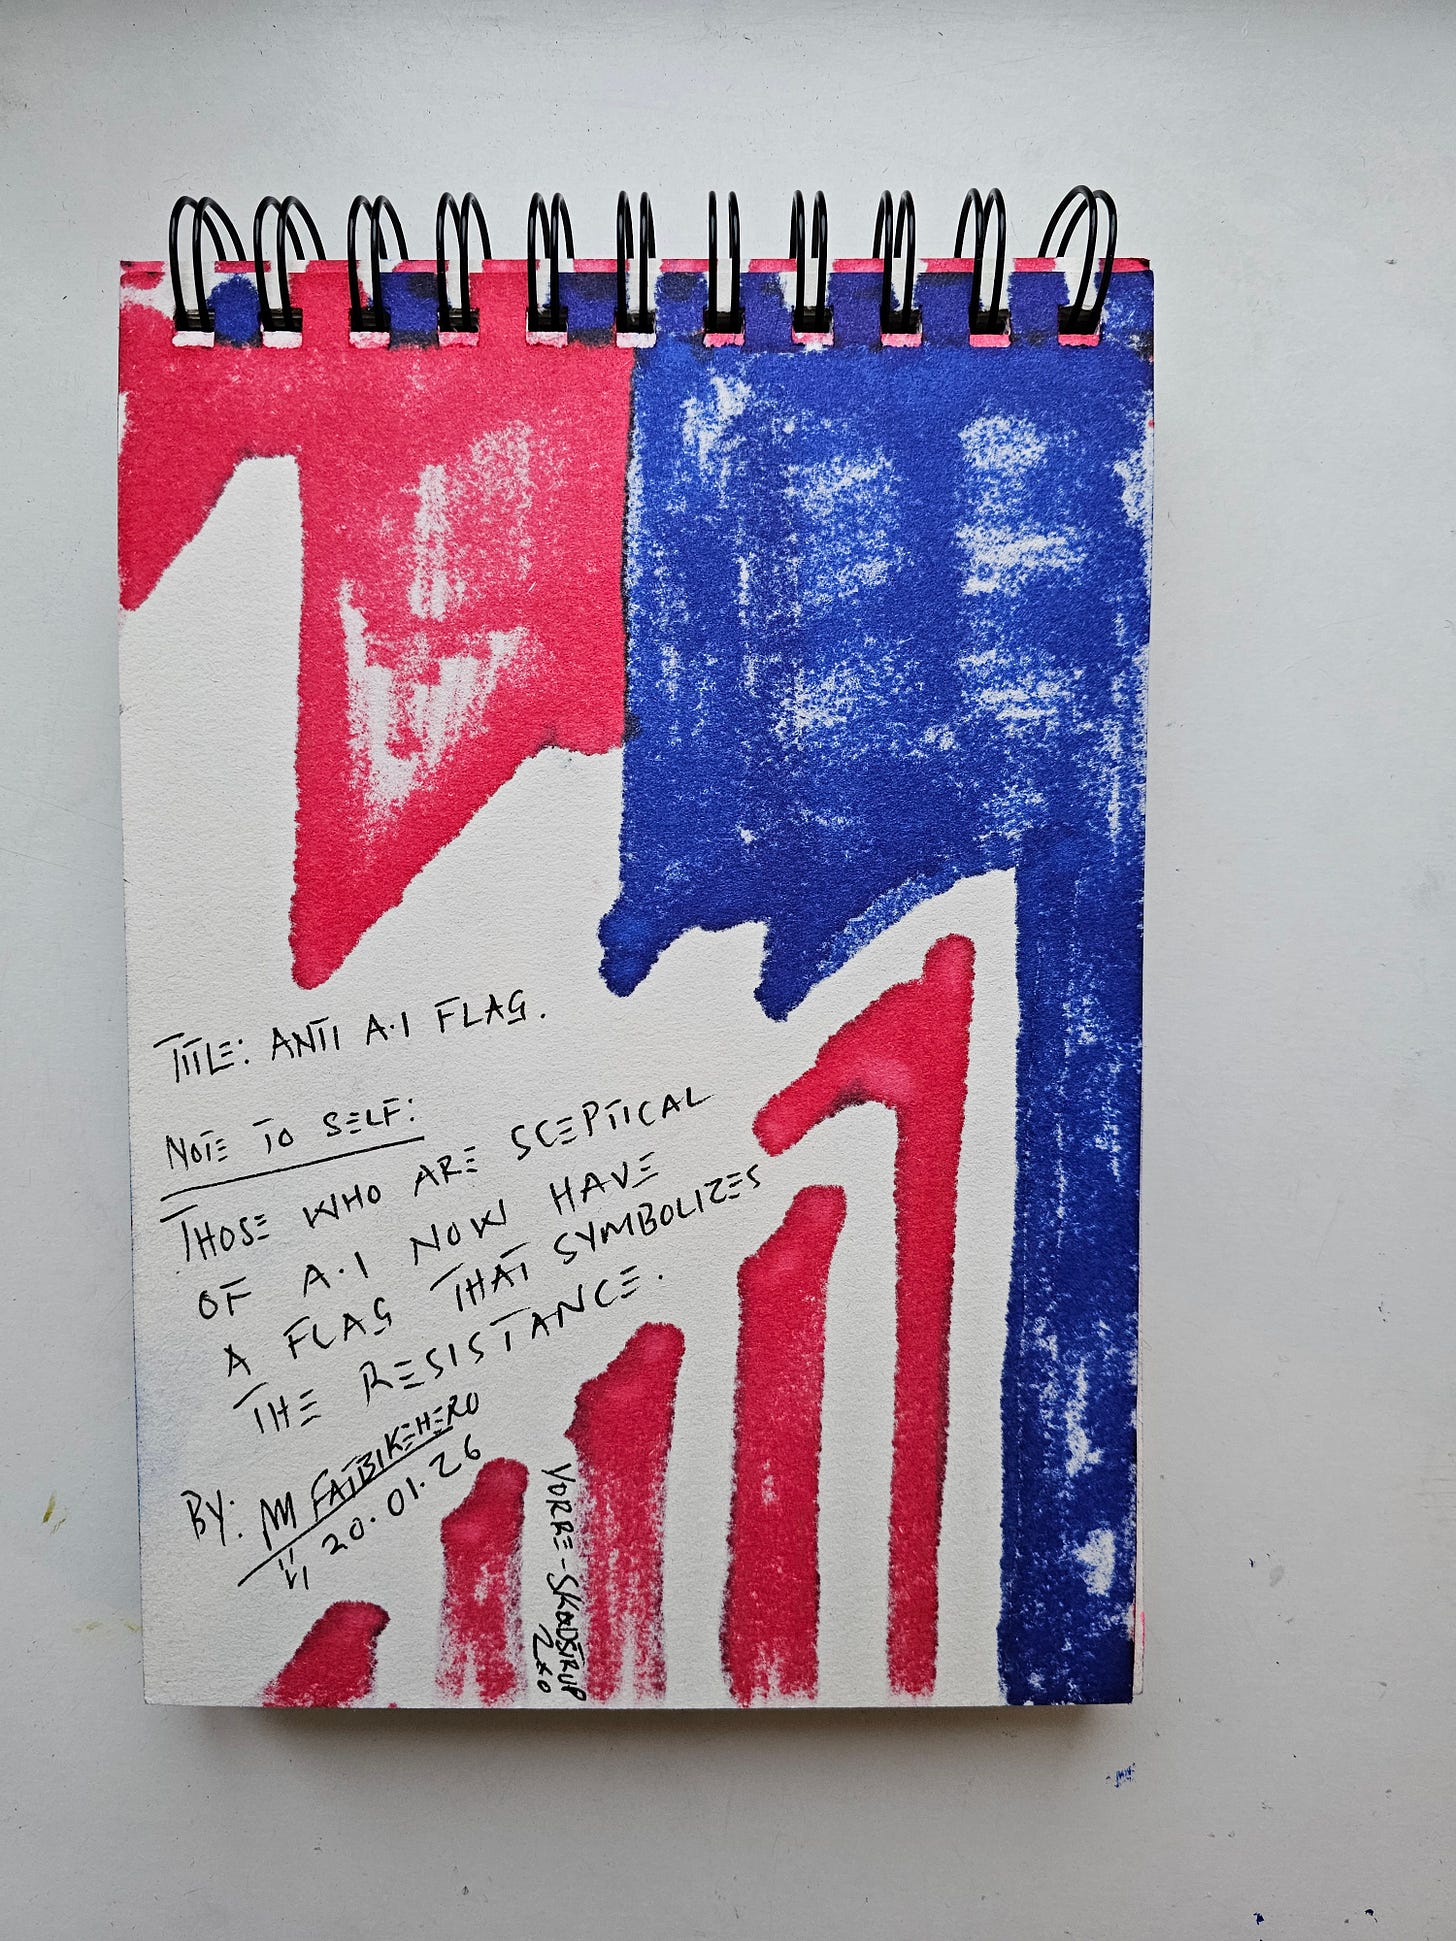 TITLE: ANTI A.I FLAG.
NOTE TO SELF:
THOSE WHO ARE SCEPTICAL
OF A.I NOW HAVE
A FLAG THAT SYMBOLIZES
THE RESISTANCE.
BY: FATBIKEHERO
20.01.26